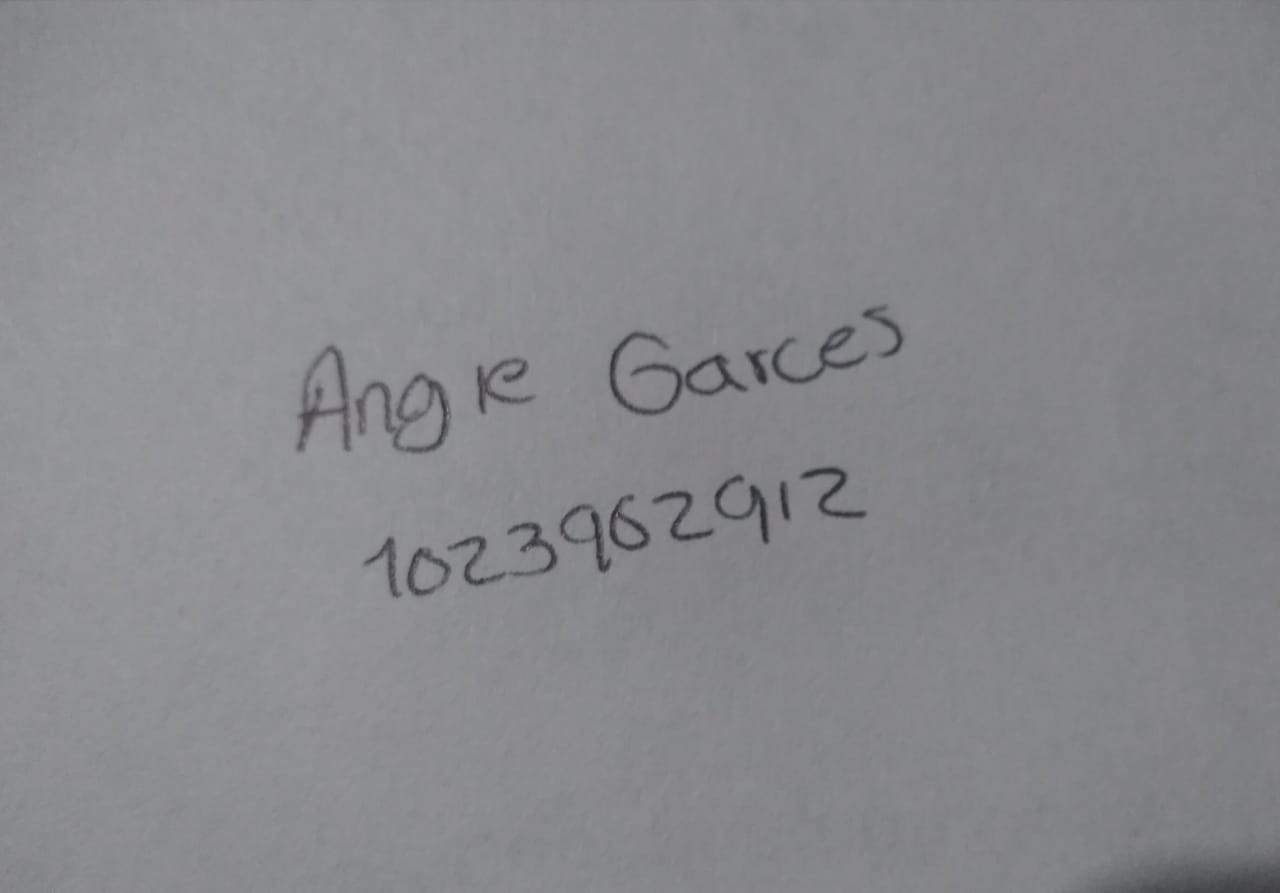 Angie Garces
1023962912